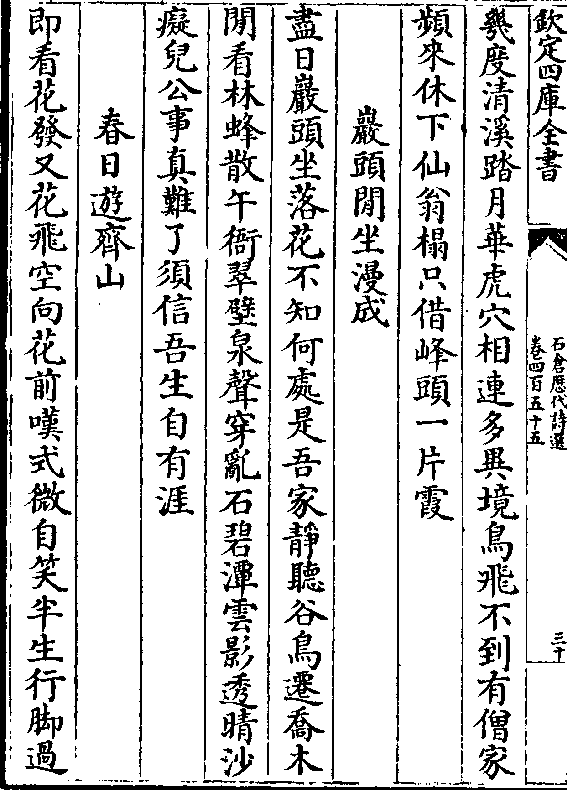 欽定四庫全書
石倉歷代詩選
卷四百五十五
三十
幾度清溪踏月華虎穴相連多異境鳥飛不到有僧家
頻來休下仙翁榻只借峰頭一片霞
巖頭閒坐漫成
盡日巖頭坐落花不知何處是吾家靜聽谷鳥遷喬木
閒看林蜂散午衙翠壁泉聲穿亂石碧潭雲影透晴沙
癡兒公事真難了須信吾生自有涯
春日遊齊山
即看花發又花飛空向花前嘆式微自笑半生行脚過